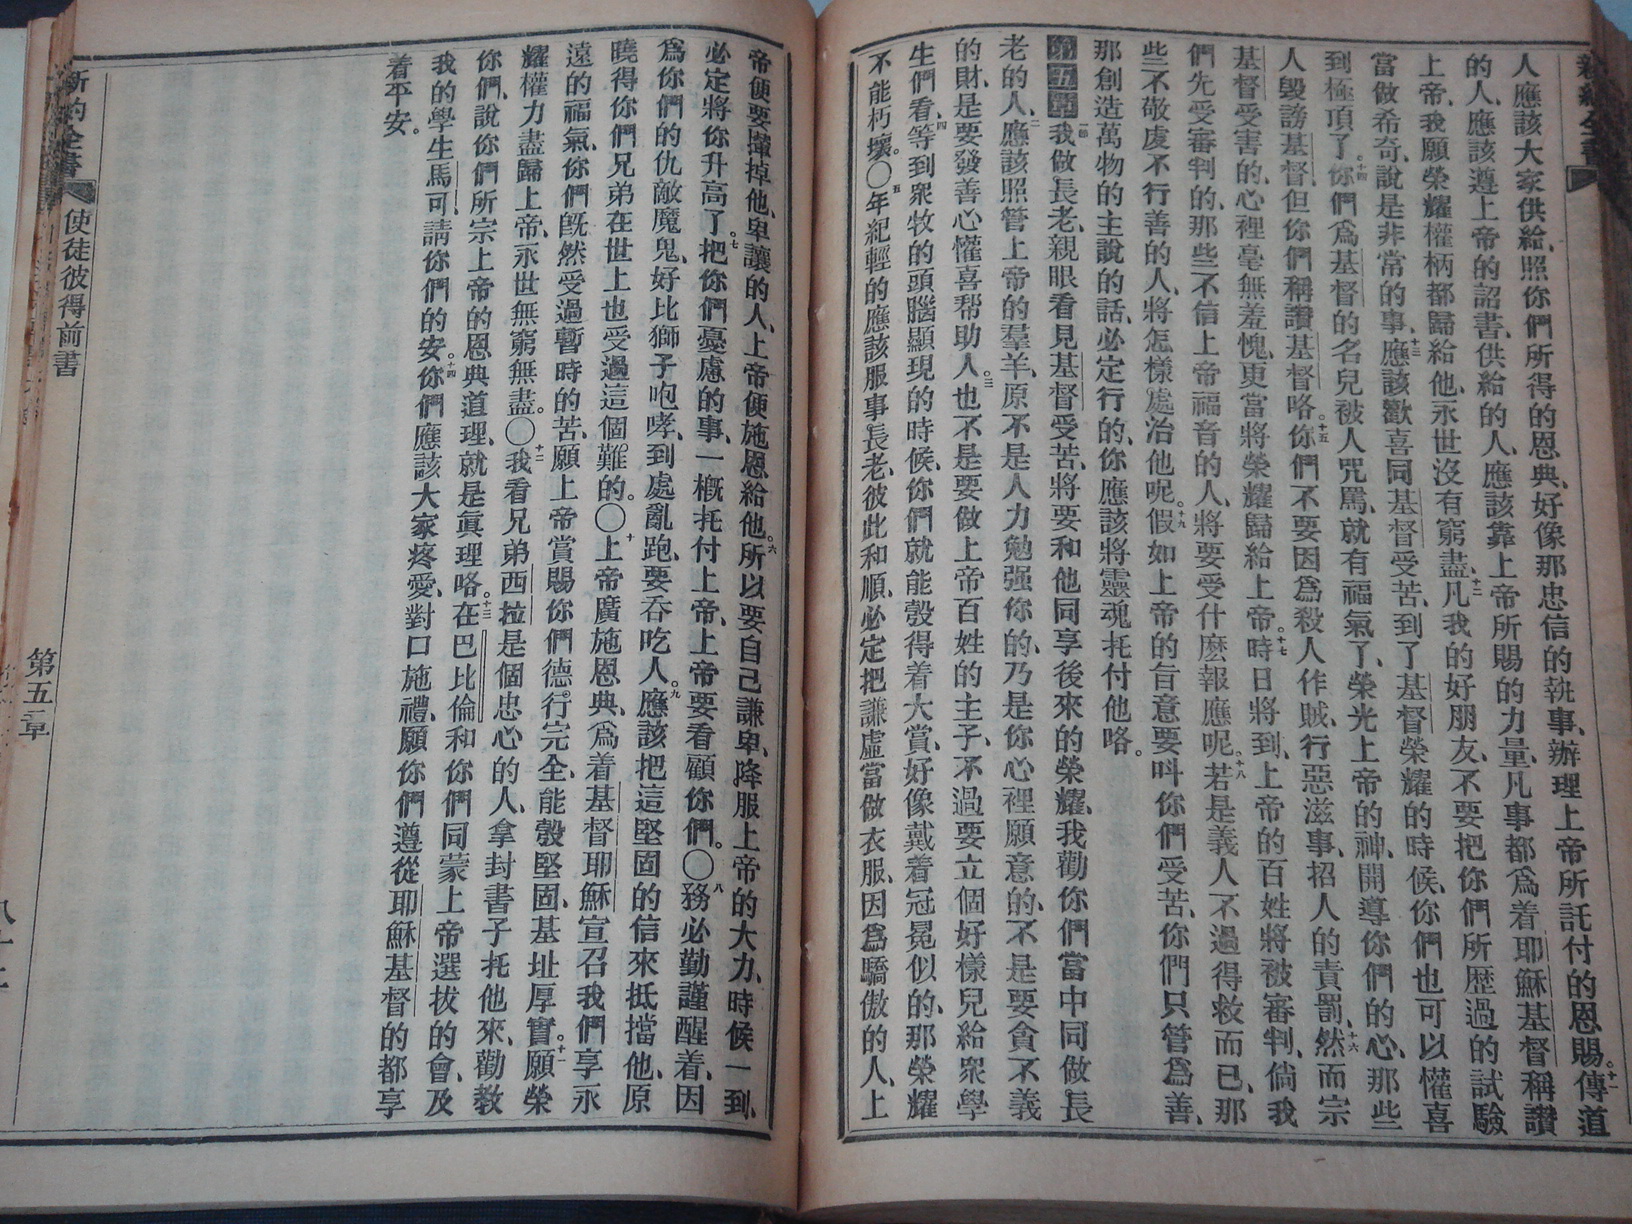 新約全書
人應該大家供給、照你們所得的恩典、好像那忠信的執事、辦理上帝所託付的恩賜。十一傳道
的人、應該遵上帝的詔書、供給的人、應該靠上帝所賜的力量、凡事都爲着耶穌基督稱讚
上帝、我願榮耀權柄都歸給他、永世沒有窮盡、十二凡我的好朋友、不要把你們所歷過的試驗
當做希奇、說是非常的事、十三應該歡喜同基督受苦、到了基督榮耀的時候、你們也可以懽喜
到極頂了。十四你們爲基督的名兒被人咒罵、就有福氣了、榮光上帝的神、開導你們的心、那些
人毀謗基督、但你們稱讚基督咯。十五你們不要因爲殺人作賊、行惡滋事、招人的責罰、十六然而宗
基督受害的、心裡毫無羞愧、更當將榮耀歸給上帝。十七時日將到、上帝的百姓將被審判、倘我
們先受審判的、那些不信上帝福音的人、將要受什麽報應呢。十八若是義人不過得救而已、那
些不敬虔不行善的人、將怎樣處治他呢。十九假如上帝的旨意要叫你們受苦、你們只管爲善、
那創造萬物的主說的話、必定行的、你應該將靈魂托付他咯。
第五章一節我做長老、親眼看見基督受苦、將要和他同享後來的榮耀、我勸你們當中同做長
老的人、二應該照管上帝的羣羊、原不是人力勉强你的、乃是你心裡願意的、不是要貪不義
的財、是要發善心懽喜帮助人。三也不是要做上帝百姓的主子、不過要立個好樣兒給眾學
生們看、四等到眾牧的頭腦顯現的時候、你們就能彀得着大賞、好像戴着冠冕似的、那榮耀
不能朽壞。〇五年紀輕的應該服事長老、彼此和順、必定把謙虛當做衣服、因爲驕傲的人、上
帝便要攆掉他、卑讓的人、上帝便施恩給他。六所以要自己謙卑、降服上帝的大力、時候一到、
必定將你升高了。七把你們憂慮的事、一槪托付上帝、上帝要看顧你們。〇八務必勤謹醒着、因
爲你們的仇敵魔鬼、好比獅子咆哮、到處亂跑、要吞吃人。九應該把這堅固的信來抵擋他、原
曉得你們兄弟在世上也受過這個難的。〇十上帝廣施恩典、爲着基督耶穌宣召我們享永
遠的福氣、你們旣然受過暫時的苦、願上帝賞賜你們德行完全、能彀堅固、基址厚實。十一願榮
耀權力盡歸上帝、永世無窮無盡。〇十二我看兄弟西拉是個忠心的人、拿封書子托他來、勸教
你們、說你們所宗上帝的恩典道理、就是眞理咯。十三在巴比倫和你們同蒙上帝選拔的會、及
我的學生馬可、請你們的安。十四你們應該大家疼愛、對口施禮、願你們遵從耶穌基督的都享
着平安。
新約全書 使徒彼得前書 第五章